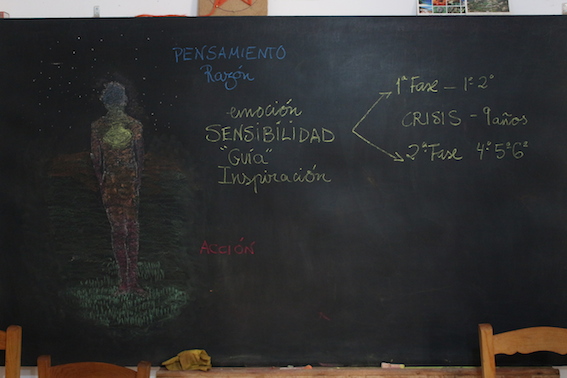 PENSAMIENTO
Razón
emoción
SENSIBILIDAD
"Guía"
Inspiración
ACCIÓN
1ª Fase – 1º-2º
CRISIS – 9 años
2ª Fase 4º5º6º